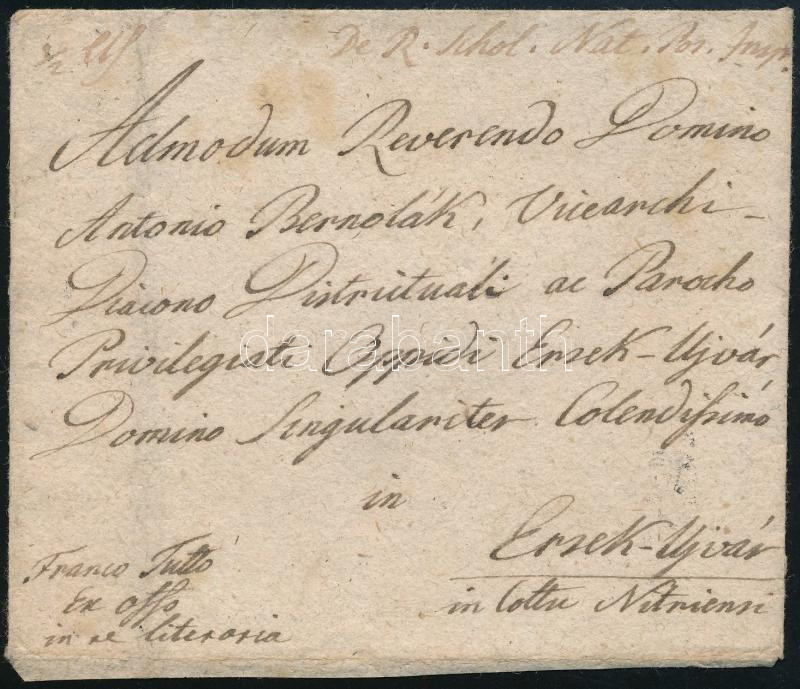 De R. Schol. Nat. Pos.
Admodum Reverendo Domino
Antonio Bernolák, Vicearchi-
Diacono Districtuali ac Parocho
Privilegiati Oppidi Ersek-Ujvár
Domino Singulariter Colendissimo
in
Ersek-Ujvár
in Cottu Nitriensi
Franco Tutto
Ex offo
in re literaria
darabanth